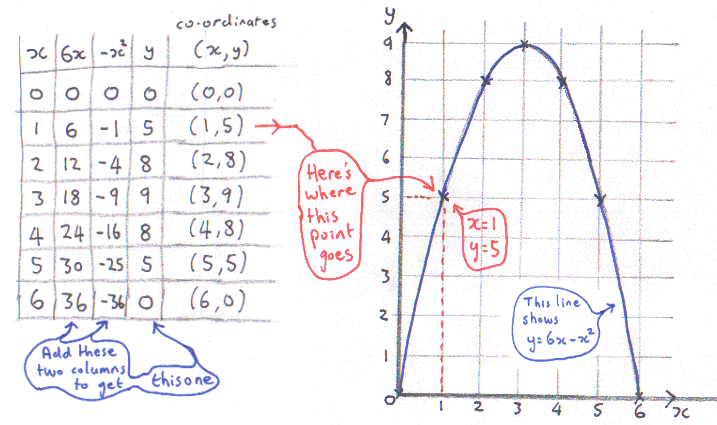 co-ordinates
x 6x -x² y (x,y)
0 0 0 0 (0,0)
1 6 -1 5 (1,5)
2 12 -4 8 (2,8)
3 18 -9 9 (3,9)
4 24 -16 8 (4,8)
5 30 -25 5 (5,5)
6 36 -36 0 (6,0)
Add these
two columns
to get
this one
Here's
where
this
point
goes
y
9
8
7
6
5
4
3
2
1
0
1 2 3 4 5 6 x
x=1
y=5
This line
shows
y=6x-x²